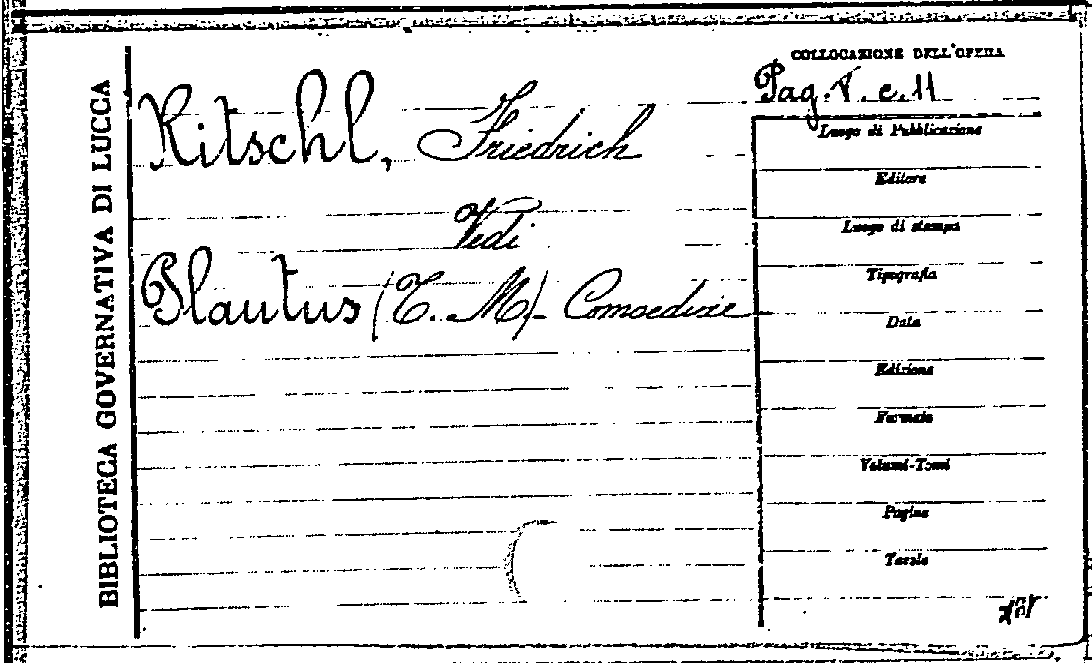 BIBLIOTECA GOVERNATIVA DI LUCCA
COLLOCAZIONE DELL'OPERA
Pag. V. c. 11
Ritschl, Friedrich
Vedi
Plautus (T. M.) - Comoediae
Luogo di Pubblicazione
Editore
Luogo di stampa
Tipografia
Data
Edizione
Formato
Volumi-Tomi
Pagine
Tavole